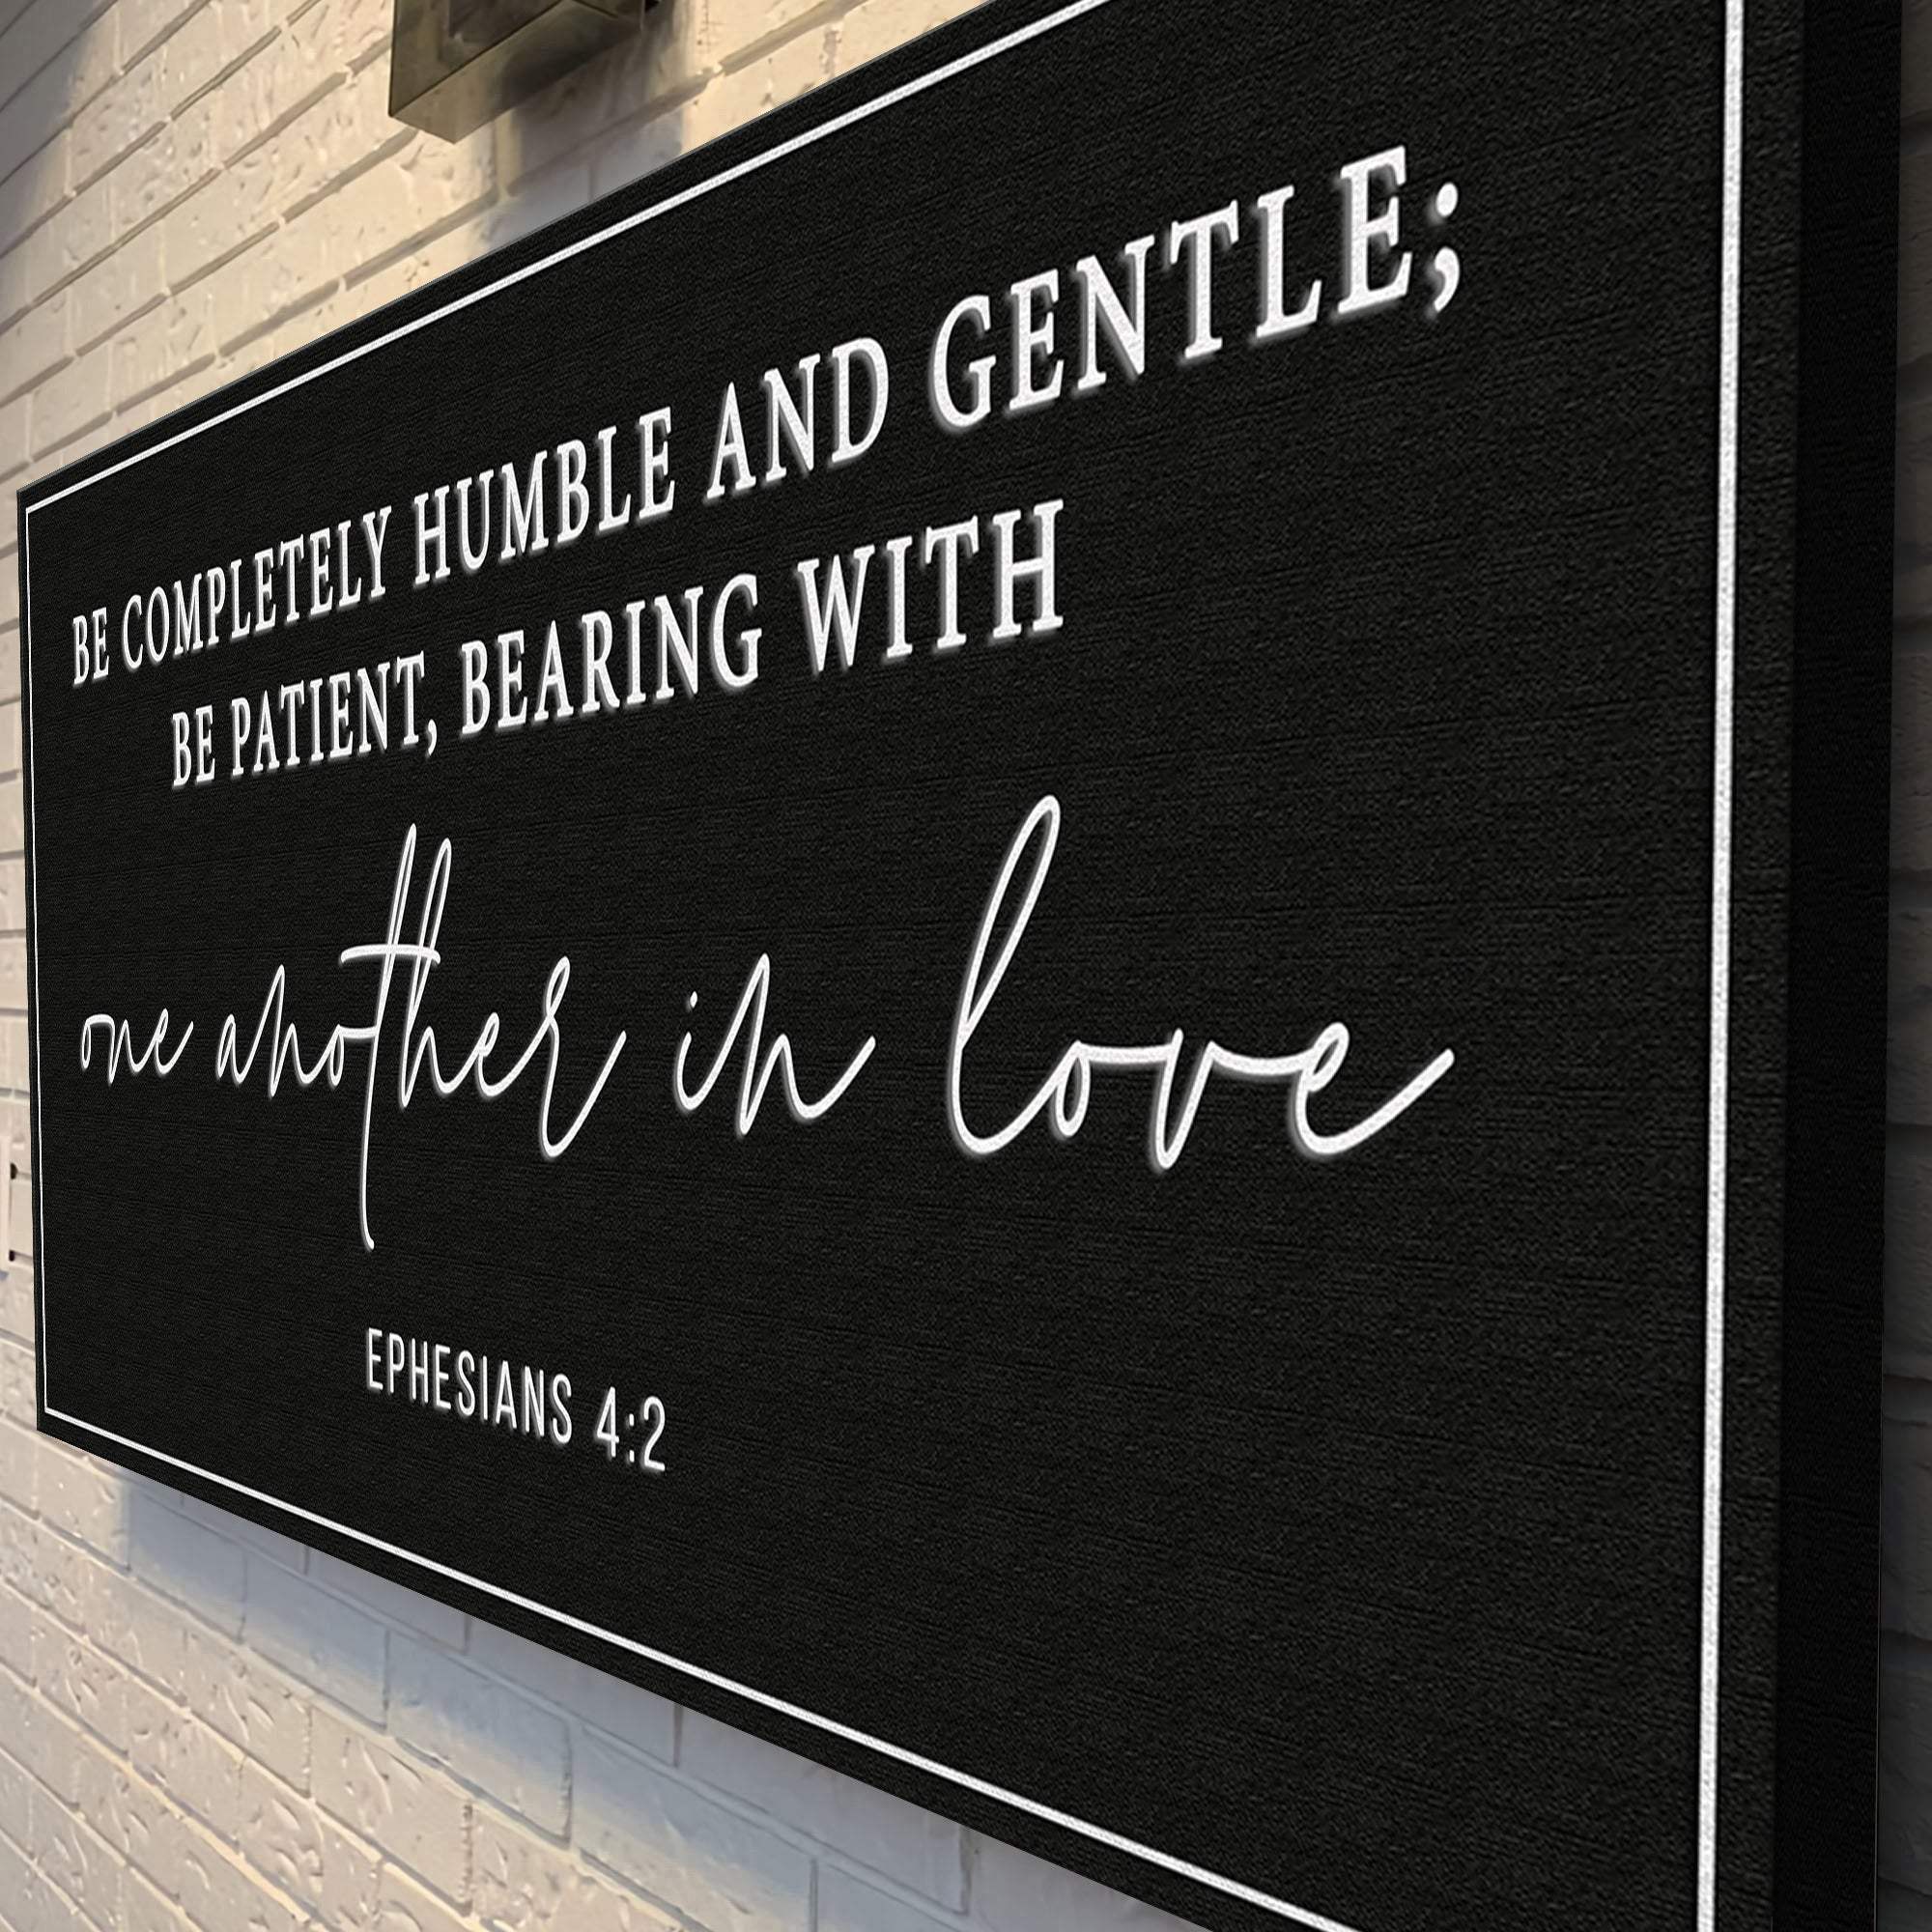 BE COMPLETELY HUMBLE AND GENTLE;
BE PATIENT, BEARING WITH
one another in love
EPHESIANS 4:2